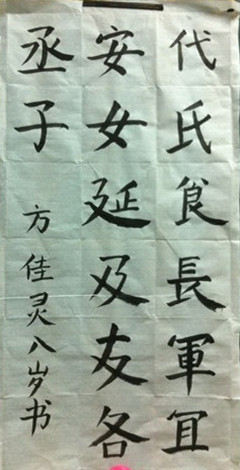 代氏食長軍宜
安女延及友各
丞子
方佳灵八岁书